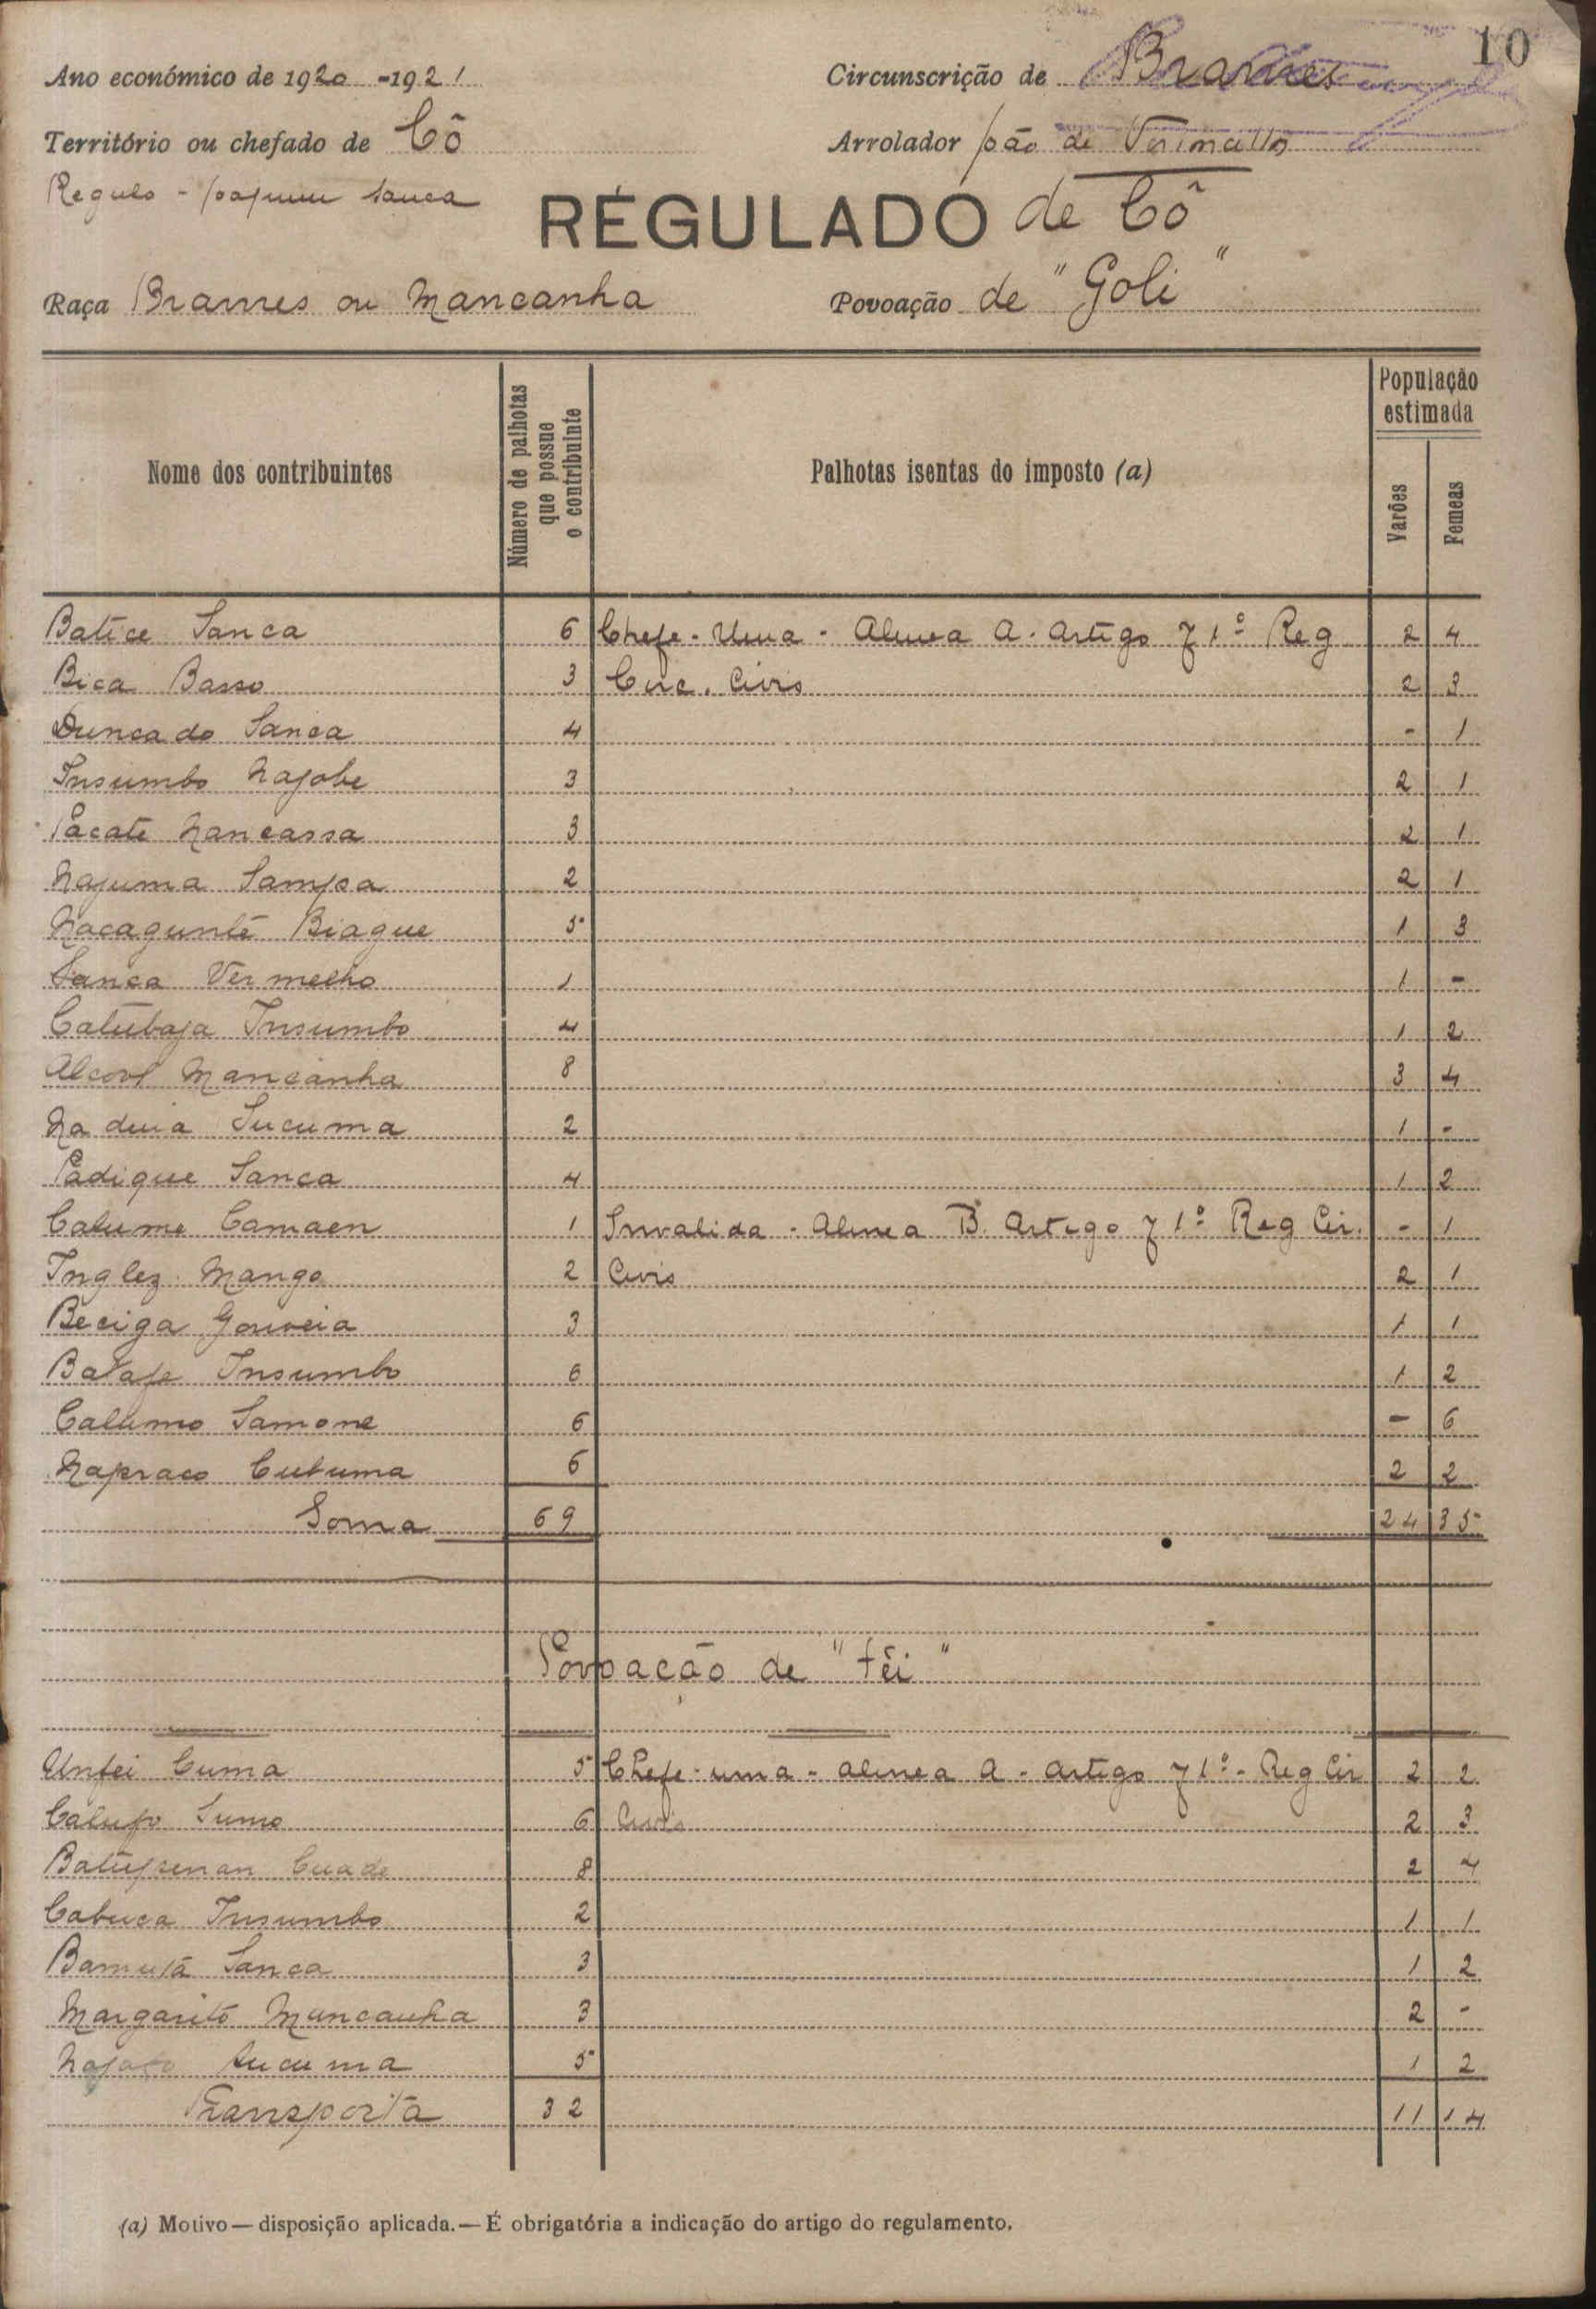 10
Ano económico de 1920-1921 Circunscrição de Brames
Território ou chefado de Cô Arrolador João de
Regulo - Joaquim Sanca
RÉGULADO de Cô
Raça Brames ou Mancanha Povoação de "Goli"
Nome dos contribuintes Número de palhotas que possue o contribuinte Palhotas isentas do imposto (a) População estimada Varões Femeas
Batice Sanca 6 Chefe - Uma - Alinea A - Artigo 71º Reg 2 4
Bica Basso 3 Circ. Civis 2 3
Duncado Sanca 4 - 1
Insumbo Najobe 3 2 1
Pacate Nancassa 3 2 1
Najuma Sampa 2 2 1
Nacagunté Biague 5 1 3
Sanca Vermelho 1 1 -
Catubaja Insumbo 4 1 2
Alcool Mancanha 8 3 4
Na duia Sucuma 2 1 -
Padique Sanca 4 1 2
Calumo Camaen 1 Invalida - Alinea B. Artigo 71º Reg Cir. - 1
Inglez Mango 2 Civis 2 1
Beciga Gouveia 3 1 1
Batafe Insumbo 6 1 2
Calumo Samone 6 - 6
Napraco Cutuma 6 2 2
Soma 69 24 35
Povoação de "Téi"
Unfei Cuma 5 Chefe - uma - alinea A - artigo 71º - Reg Cir 2 2
Calufo Sumo 6 Civis 2 3
Batupenan Cuade 8 2 4
Cabuca Insumbo 2 1 1
Bamutá Sanca 3 1 2
Margarito Mancanha 3 2 -
Najofo Sucuma 5 1 2
Transporta 32 11 14
(a) Motivo — disposição aplicada. — É obrigatória a indicação do artigo do regulamento.